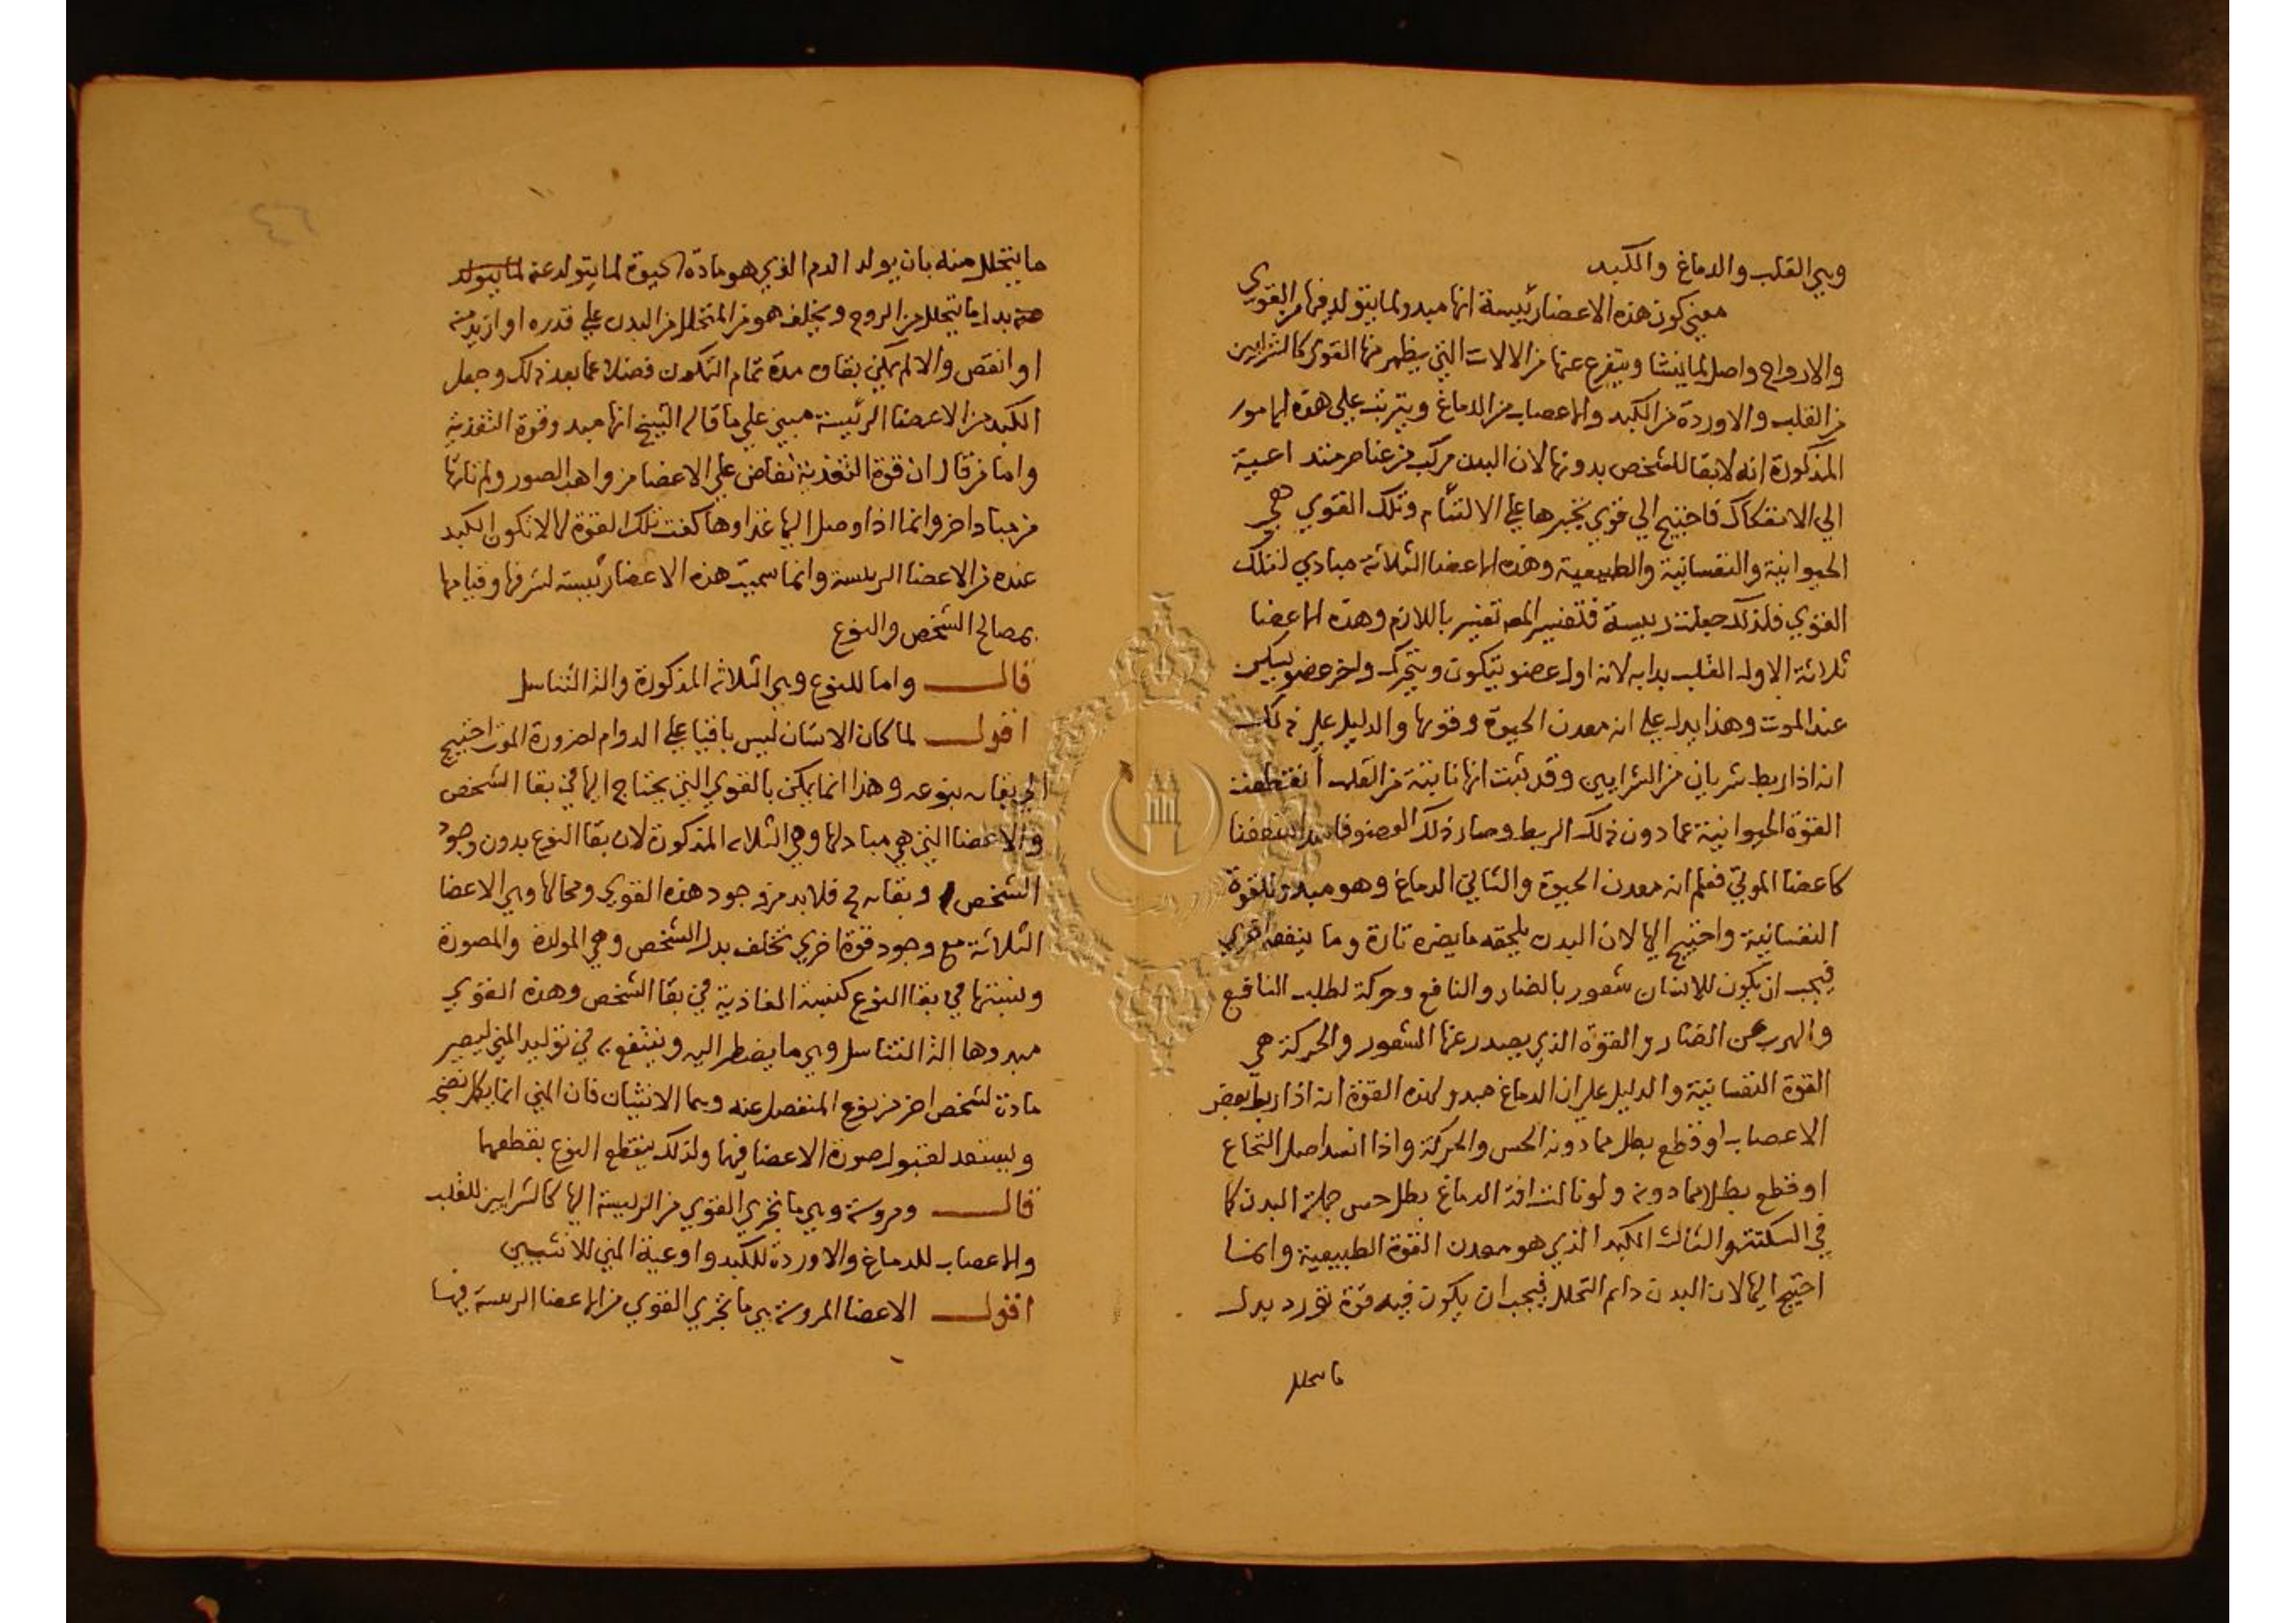 وهي القلب والدماغ والكبد
معني كون هذه الاعضا رئيسة انها مبدو لما يتولد فيها من القوي
والارواح واصل لما ينشا ويتفرع عنها من الالات التي يظهر منها القوي كالشرايين
من القلب والاوردة من الكبد والاعصاب من الدماغ ويترتب علي هذه الامور
المذكورة انه لا بقا للشخص بدونها لان البدن مركب من عناصر متداعية
الي الانفكاك فاحتيج الي قوي تجبرها علي الالتئام وتلك القوي هي
الحيوانية والنفسانية والطبيعية وهذه الاعضا الثلاثة مبادي لتلك
القوي فلذلك جعلت رييسة فتفسير المص تفسير باللازم وهذه الاعضا
ثلاثة الاول القلب بدا به لانه اول عضو يتكون ويتحرك واخر عضو يسكن
عند الموت وهذا يدل علي انه معدن الحيوة وقوتها والدليل علي ذلك
انه اذا ربط شريان من الشرايين وقد ثبت انها نابتة من القلب انقطعت
القوة الحيوانية عما دون ذلك الربط وصار ذلك العضو فاسدا متعفنا
كاعضا الموتي فعلم انه معدن الحيوة والثاني الدماغ وهو مبدو للقوة
النفسانية واحتيج اليها لان البدن يلحقه ما يضره تارة وما ينفعه اخري
فيجب ان يكون للانسان شعور بالضار والنافع وحركة لطلب النافع
والهرب عن الضار والقوة الذي يصدر عنها الشعور والحركة هي
القوة النفسانية والدليل علي ان الدماغ مبدو لهذه القوة انه اذا ربط بعض
الاعصاب او قطع بطل مما دونه الحس والحركة واذا انسد اصل النخاع
او قطع بطلا مما دونه ولو نالت افة الدماغ بطل حس جملة البدن كما
في السكتة والثالث الكبد الذي هو معدن القوة الطبيعية وانما
احتيج اليها لان البدن دايم التحلل فيجب ان يكون فيه قوة تورد بدل
ما يتحلل
ما يتحلل منه بان يولد الدم الذي هو مادة الحيوة لما يتولد عنه لما يتولد
عنه بدل ما يتحلل من الروح ويخلف هو من المتحلل من البدن علي قدره او ازيد منه
او انقص والا لم يمكن بقاوه مدة تمام التكون فضلا عما بعد ذلك وجعل
الكبد من الاعضا الرئيسة مبني علي ما قاله الشيخ انها مبدو قوة التغذية
واما من قال ان قوة التغذية تفاض علي الاعضا من واهب الصور ولم ناتها
من مبدا اخر وانما اذا وصل اليها غذاوها كفت تلك القوة لها لا تكون الكبد
عنده من الاعضا الرييسة وانما سميت هذه الاعضا رئيسة لشرفها وقيامها
بمصالح الشخص والنوع
قال واما للنوع وهي الثلاثة المذكورة والة التناسل
اقول لما كان الانسان ليس باقيا علي الدوام لضرورة الموت احتيج
الي بقايه بنوعه وهذا انما يمكن بالقوي التي يحتاج اليها في بقا الشخص
والاعضا التي هي مبادلها وهي الثلاثة المذكورة لان بقا النوع بدون وجود
الشخص وبقايه مح فلا بد من وجود هذه القوي ومحالها وهي الاعضا
الثلاثة مع وجود قوة اخري تخلف بدل الشخص وهي المولدة والمصورة
ونسبتها في بقا النوع كنسبة الغاذية في بقا الشخص وهذه القوي
مبدوها الة التناسل وهي ما يضطر اليه وينتفع به في توليد المني ليصير
مادة لشخص اخر من نوع المنفصل عنه وهما الانثيان فان المني انما يكمل نضجه
ويستعد لقبول صورة الاعضا فيها ولذلك ينقطع النوع بقطعهما
قال ومروسة وهي ما تجري القوي من الرييسة اليها كالشرايين للقلب
والاعصاب للدماغ والاوردة للكبد واوعية المني للانثيين
اقول الاعضا المروسة هي ما تجري القوي من الاعضا الرييسة فيها